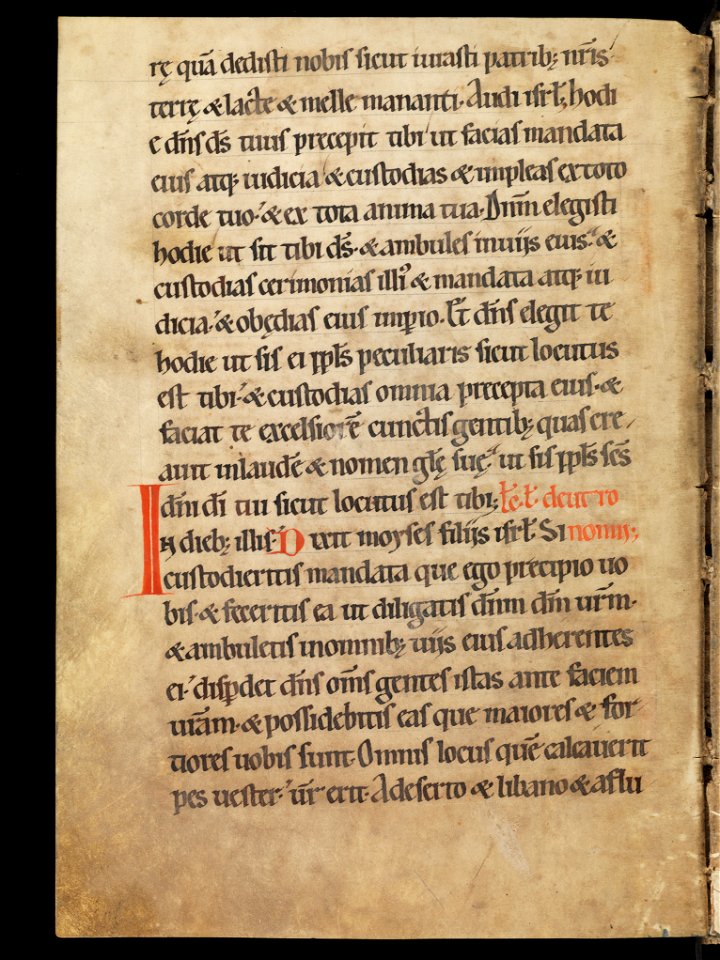 rę quā dedisti nobis sicut iurasti patrib; nr̄is
terrę & lacte & melle mananti. Audi isrl̄, hodi
e dn̄s ds̄ tuus precepit tibi ut facias mandata
eius atq; iudicia & custodias & impleas ex toto
corde tuo. & ex tota anima tua. Dnm̄ elegisti
hodie ut sit tibi ds̄. & ambules in uijs eius. &
custodias cerimonias illi' & mandata atq; iu
dicia. & obędias eius imp̄io. Et dn̄s elegit te
hodie ut sis ei ppl̄s peculiaris sicut locutus
est tibi. & custodias omnia precepta eius. &
faciat te excelsiorē cunctis gentib; quas cre
auit in laudē & nomen glę̄ suę. ut sis ppl̄s sc̄s
dn̄i dī tui sicut locutus est tibi; Lc̄. L. deut ro
In dieb; illis. Dixit moyses filijs isrl̄. Si nomii;
custodieritis mandata que ego precipio uo
bis. & feceritis ea ut diligatis dn̄m dm̄ ur̄m.
& ambuletis in omnib; uijs eius adherentes
ei. disp̄det dn̄s om̄s gentes istas ante faciem
ur̄am. & possidebitis eas que maiores & for
tiores uobis sunt. Omnis locus quē calcauerit
pes uester. ur̄ erit. A deserto & libano & a flu